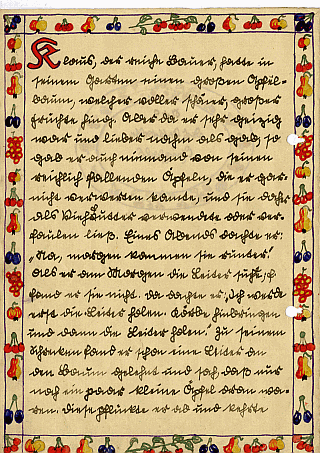 Klaus, der reiche Bauer, hatte in
seinem Garten einen großen Apfel-
baum, welcher voller schöner, großer
Früchte hing. Aber da er sehr geizig
war und lieber nahm als gab, so
gab er auch niemand von seinen
reichlich fallenden Äpfeln, die er gar-
nicht verwerten konnte, und sie daher
als Viehfutter verwendete oder ver-
faulen ließ. Eines Abends dachte er:
„Na, morgen kommen sie runter!"
Als er am Morgen die Leiter sucht,
fand er sie nicht. Da dachte er: „Ich werde
erst die Leiter holen. Körbe hinbringen
und dann die Leiter holen." Zu seinem
Schrecken fand er schon eine Leiter an
den Baum gelehnt und sah, daß nur
noch ein paar kleine Äpfel dran wa-
ren. Diese pflückte er ab und kehrte